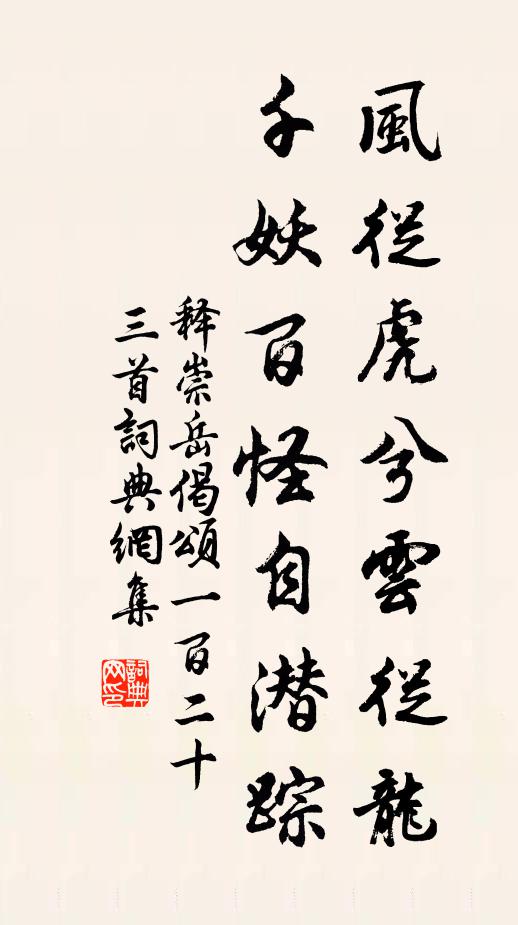 風從虎兮雲從龍
千妖百怪自潜踪
释崇岳偈頌一百二十
三首詞典網集
詞典网印